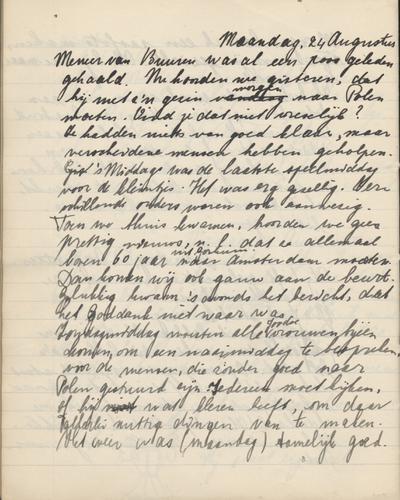 Maandag, 24 Augustus
Meneer van Buuren was al een poos geleden
gehaald. We hoorden we gisteren, dat
hij met z'n gezin vandaag morgen naar Polen
moesten. Vind je dat niet vreselijk?
Ze hadden niets van goed klaar, maar
verscheidene mensen hebben geholpen.
's Middags was de laatste speelmiddag
voor de kleintjes. Het was erg gezellig. Ver-
schillende ouders waren ook aanwezig.
Toen we thuis kwamen, hoorden we geen
prettig nieuws, n.l. dat ze allemaal
boven 60 jaar uit Gorkum naar Amsterdam moeten.
Dan komen wij ook gauw aan de beurt.
Gelukkig kwam 's avonds het bericht, dat
het Goddank niet waar was.
moesten alle Joodse vrouwen bijeen
komen, om een naaimiddag te bespreken,
voor de mensen, die zonder goed naar
Polen gestuurd zijn. Iedereen moet kijken,
of hij niet wat kleren heeft, om daar
allerlei nuttige dingen van te maken.
Het weer was (maandag) tamelijk goed.